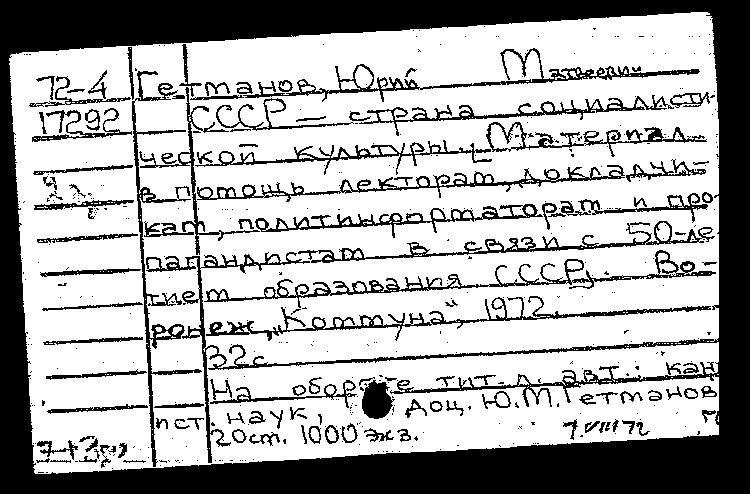 72-4 Гетманов, Юрий Матвеевич
17292 СССР — страна социалисти-
ческой культуры. [Материал
в помощь лекторам, докладчи-
кам, политинформаторам и про-
пагандистам в связи с 50-ле-
тием образования СССР]. Во-
ронеж, „Коммуна“, 1972.
32с
На обороте тит. л. авт.: канд.
ист. наук, доц. Ю.М. Гетманов
20см. 1000 экз. 7.VIII 72